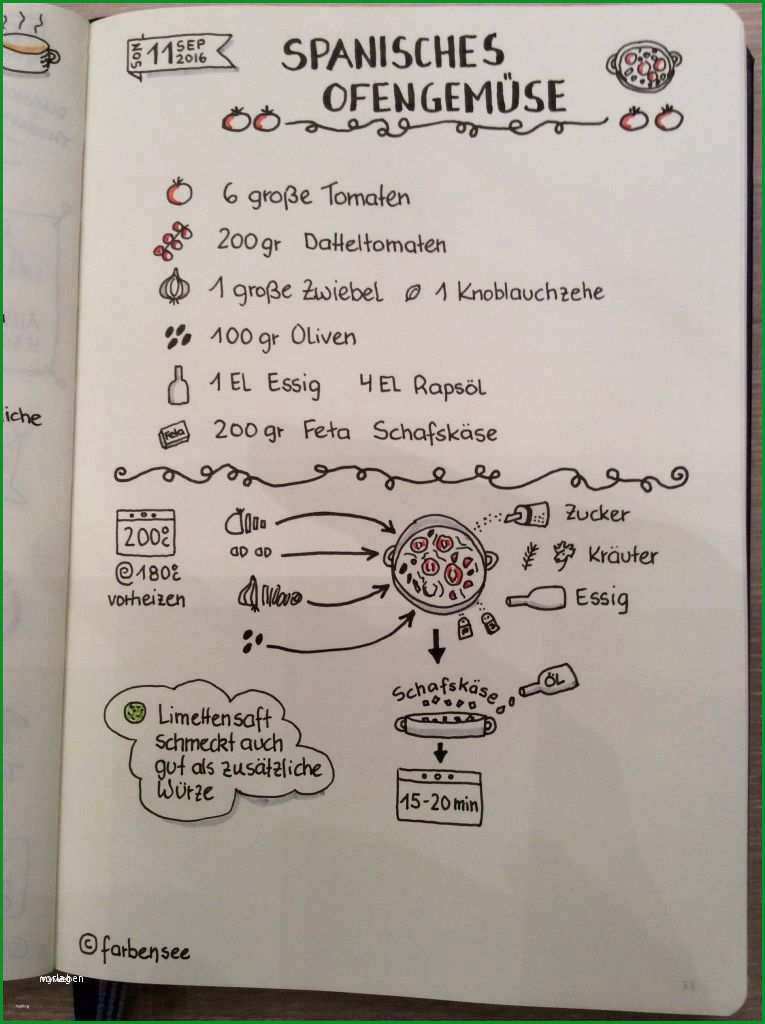 SON 11 SEP 2016
SPANISCHES
OFENGEMÜSE
6 große Tomaten
200gr Datteltomaten
1 große Zwiebel 1 Knoblauchzehe
100gr Oliven
1 EL Essig 4 EL Rapsöl
Feta 200gr Feta Schafskäse
iche
200°C
@180°C
vorheizen
Zucker
Kräuter
Essig
Schafskäse
ÖL
15-20min
Limettensaft
schmeckt auch
gut als zusätzliche
Würze
© farbensee